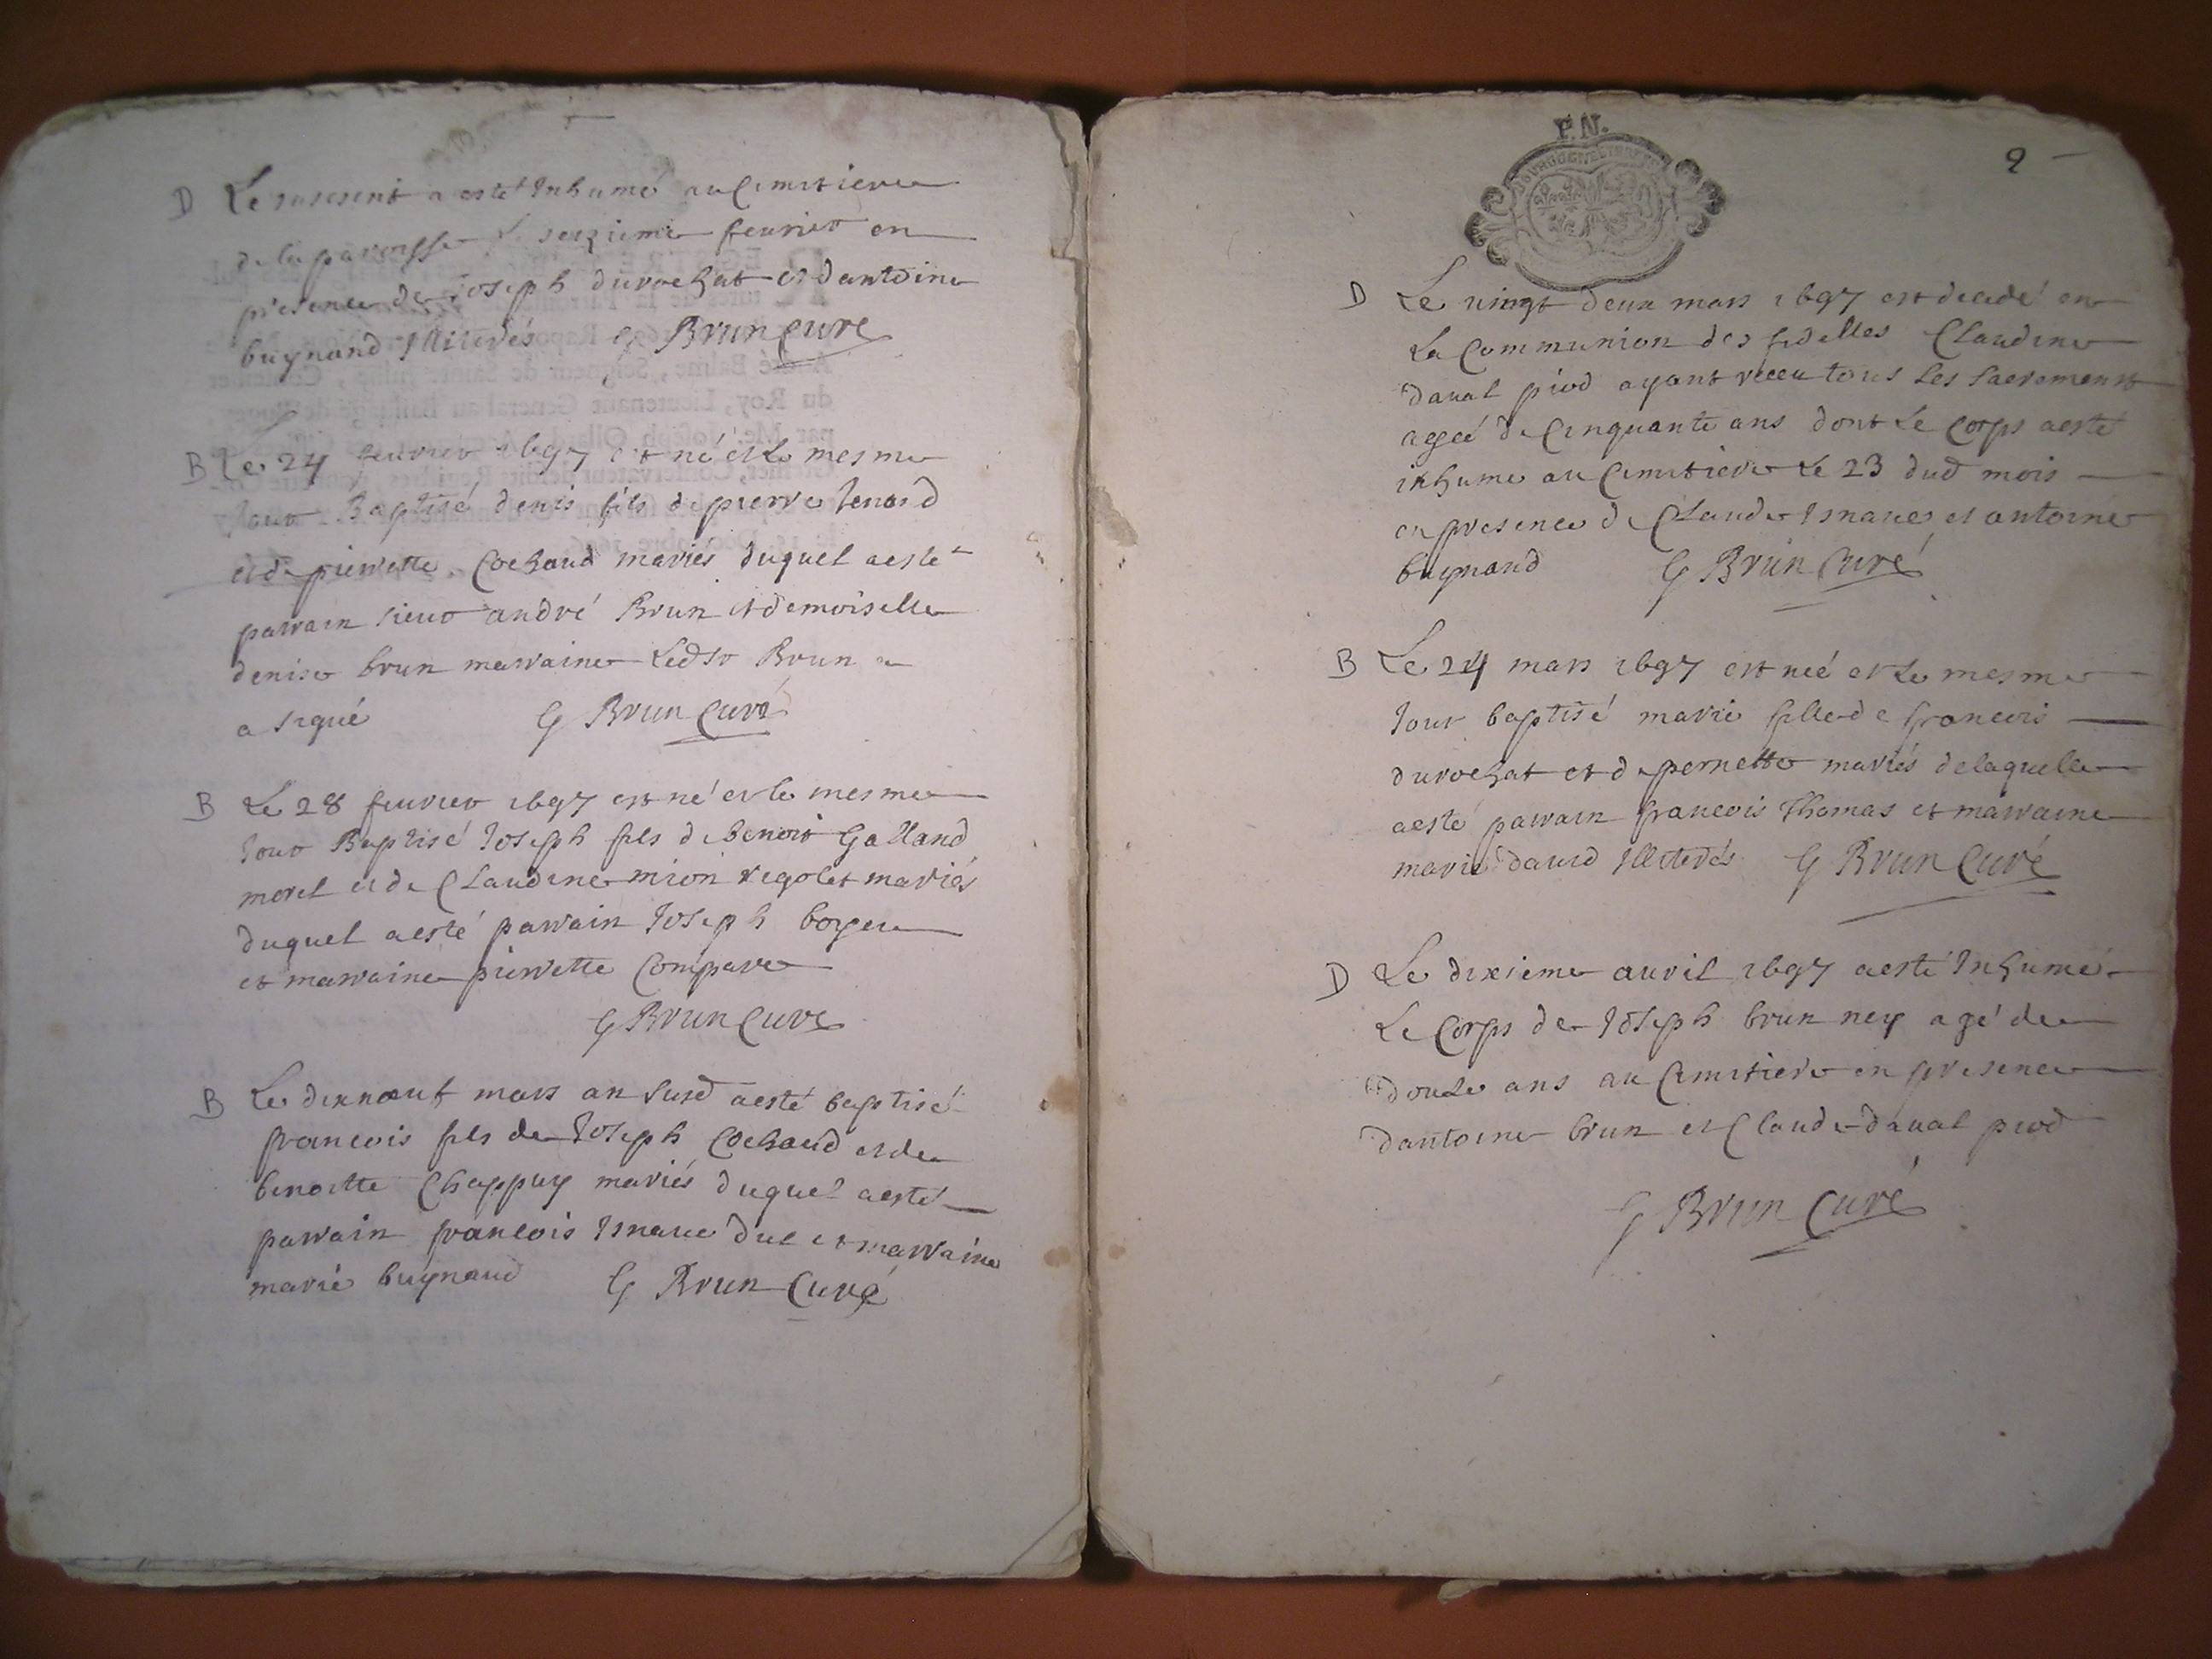 D Le susescrit a esté Inhumé au Cimitiere
de la paroisse le seizieme feurier en
présence de Joseph durochat et dantoine
buynand Illiterés G Brun Curé
B Le 24 feurier 1697 est né et le mesme
Jour Baptisé denis fils de pierre
et de pierrette Cochaud mariés duquel aesté
parrain sieur andré Brun et demoiselle
denise brun marraine Ledsr Brun
a signé G Brun Curé
B Le 28 feurier 1697 est né et le mesme
Jour Baptisé Joseph fils de benoit Galland
morel et de Claudine mion regolet mariés
duquel aesté parrain Joseph boyer
et marraine pierrette Compare
G Brun Curé
B Le dixnœuf mars an susd aesté baptisé
francois fils de Joseph Cochaud et de
benoitte Chappuy mariés duquel aesté
parrain francois duc et marraine
marie buynand G Brun Curé
P.N.
2
D Le uingt deux mars 1697 est decedé en
La Communion des fidelles Claudine
daual piod ayant receu tous Les sacrements
ageé de Cinquante ans dont Le Corps aesté
inhume au Cimitiere Le 23 dud mois
en presence de Claude et antoine
buynand G Brun Curé
B Le 24 mars 1697 est neé et Le mesme
Jour baptisé marie fille de francois
durochat et de pernette mariés de laquelle
aesté parrain francois Thomas et marraine
marie dauid Illiterés G Brun Curé
D Le dixieme auril 1697 aesté Inhumé
Le Corps de Joseph brun ney agé de
douze ans au Cimitiere en presence
dantoine brun et Claude daual piod
G Brun Curé